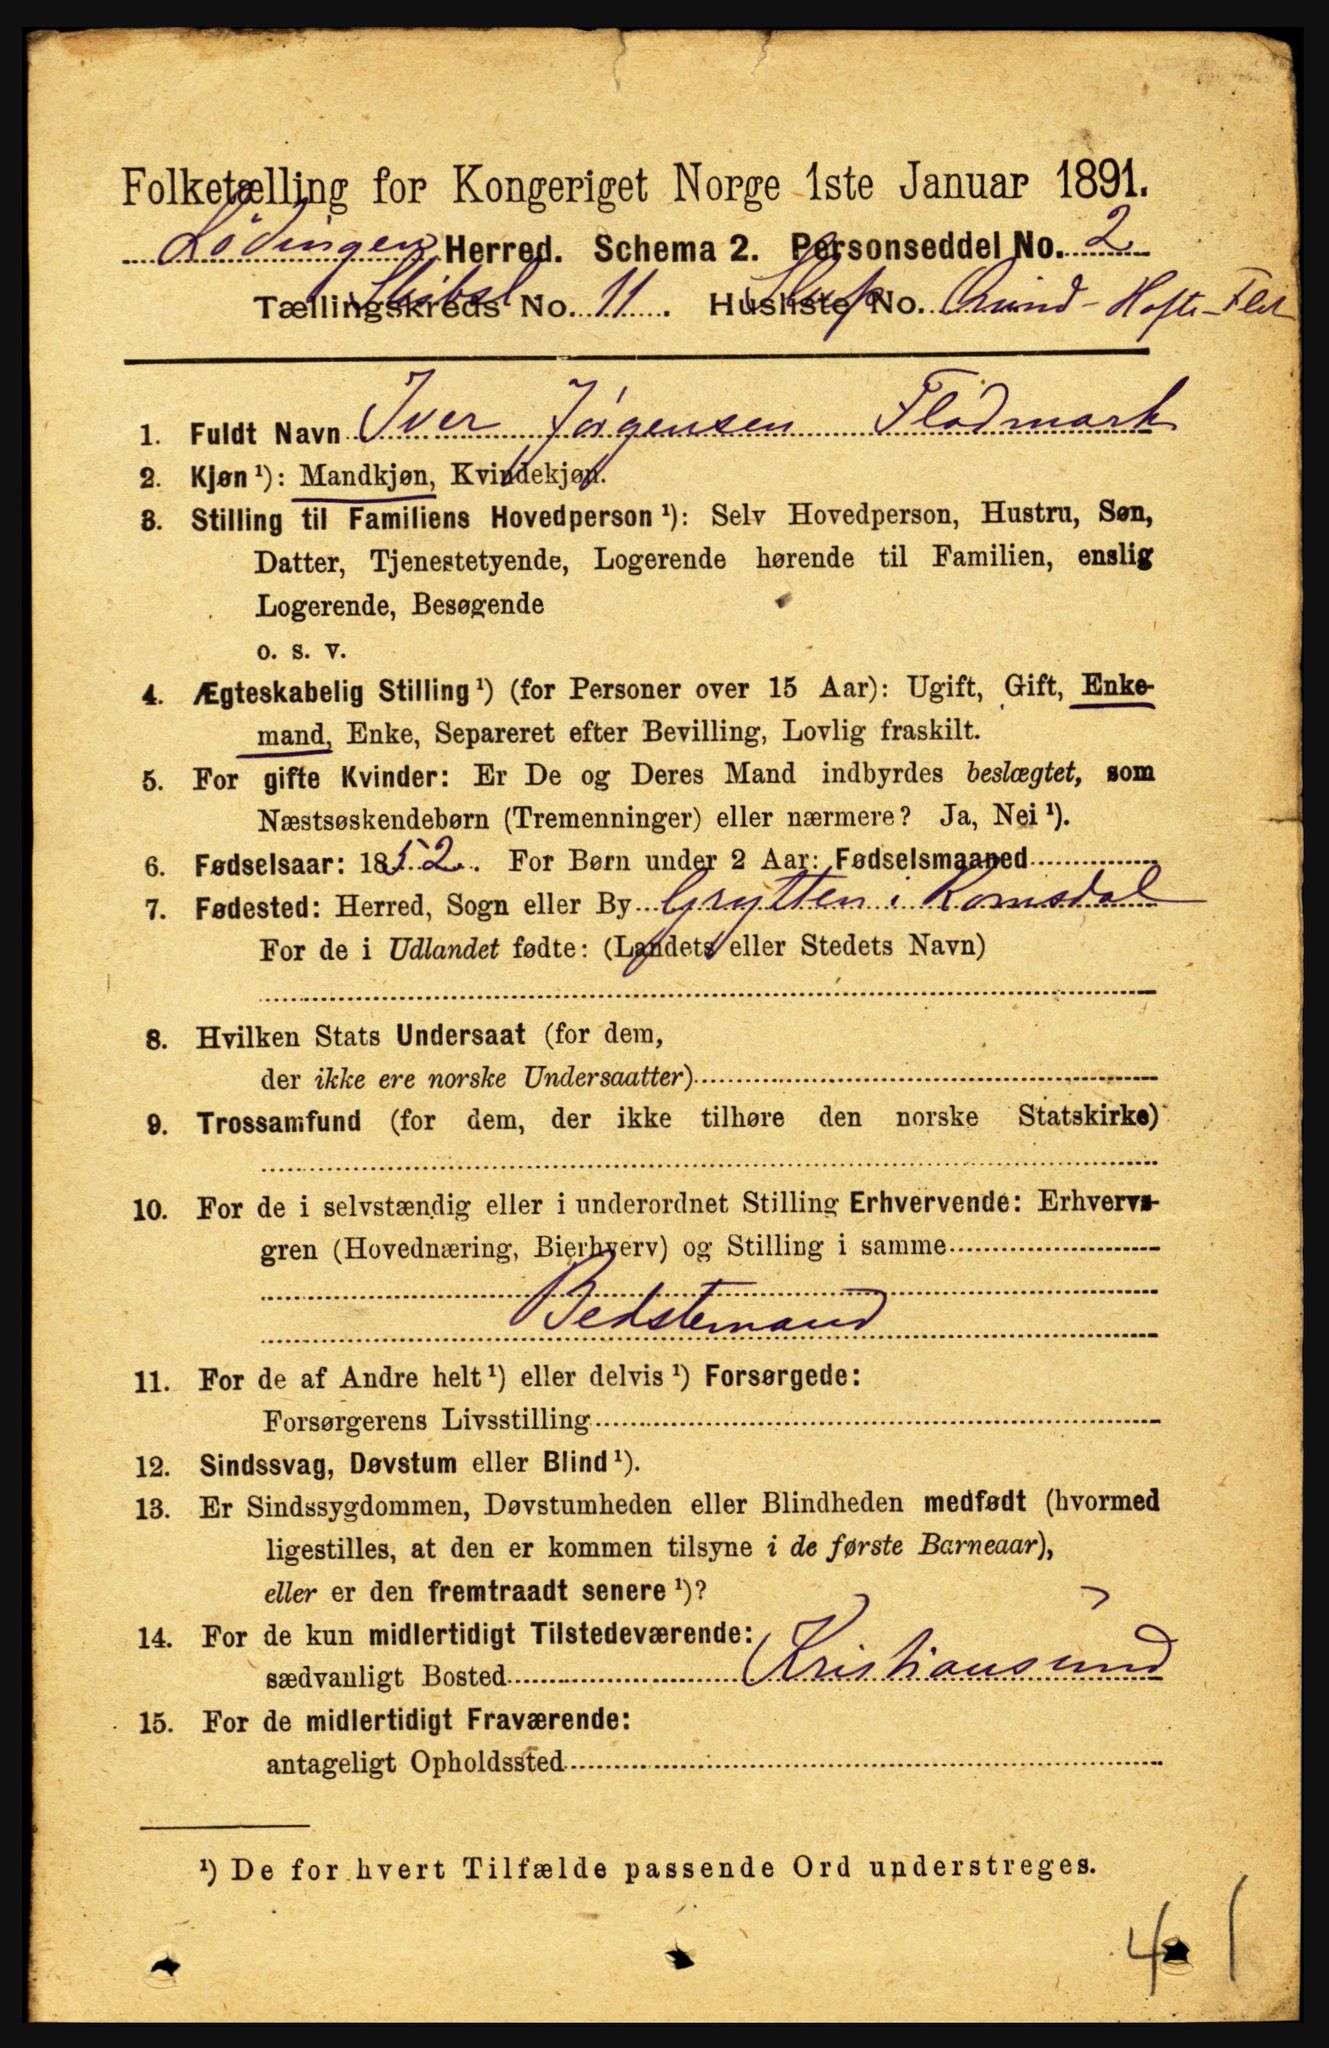 Folketælling for Kongeriget Norge 1ste Januar 1891.
Lødingen Herred. Schema 2. Personseddel No. 2
Tællingskreds No. 11. Husliste No.
1. Fuldt Navn Iver Jørgensen Flødmark
2. Kjøn ¹): Mandkjøn, Kvindekjøn.
3. Stilling til Familiens Hovedperson ¹): Selv Hovedperson, Hustru, Søn,
Datter, Tjenestetyende, Logerende hørende til Familien, enslig
Logerende, Besøgende
o. s. v.
4. Ægteskabelig Stilling ¹) (for Personer over 15 Aar): Ugift, Gift, Enke-
mand, Enke, Separeret efter Bevilling, Lovlig fraskilt.
5. For gifte Kvinder: Er De og Deres Mand indbyrdes beslægtet, som
Næstsøskendebørn (Tremenninger) eller nærmere? Ja, Nei ¹).
6. Fødselsaar: 1852. For Børn under 2 Aar: Fødselsmaaned
7. Fødested: Herred, Sogn eller By Grytten i Romsdal
For de i Udlandet fødte: (Landets eller Stedets Navn)
8. Hvilken Stats Undersaat (for dem,
der ikke ere norske Undersaatter)
9. Trossamfund (for dem, der ikke tilhøre den norske Statskirke)
10. For de i selvstændig eller i underordnet Stilling Erhvervende: Erhvervs-
gren (Hovednæring, Bierhverv) og Stilling i samme
Bedstemand
11. For de af Andre helt ¹) eller delvis ¹) Forsørgede:
Forsørgerens Livsstilling
12. Sindssvag, Døvstum eller Blind ¹).
13. Er Sindssygdommen, Døvstumheden eller Blindheden medfødt (hvormed
ligestilles, at den er kommen tilsyne i de første Barneaar),
eller er den fremtraadt senere ¹)?
14. For de kun midlertidigt Tilstedeværende:
sædvanligt Bosted Kristiansund
15. For de midlertidigt Fraværende:
antageligt Opholdssted
¹) De for hvert Tilfælde passende Ord understreges.
4 1